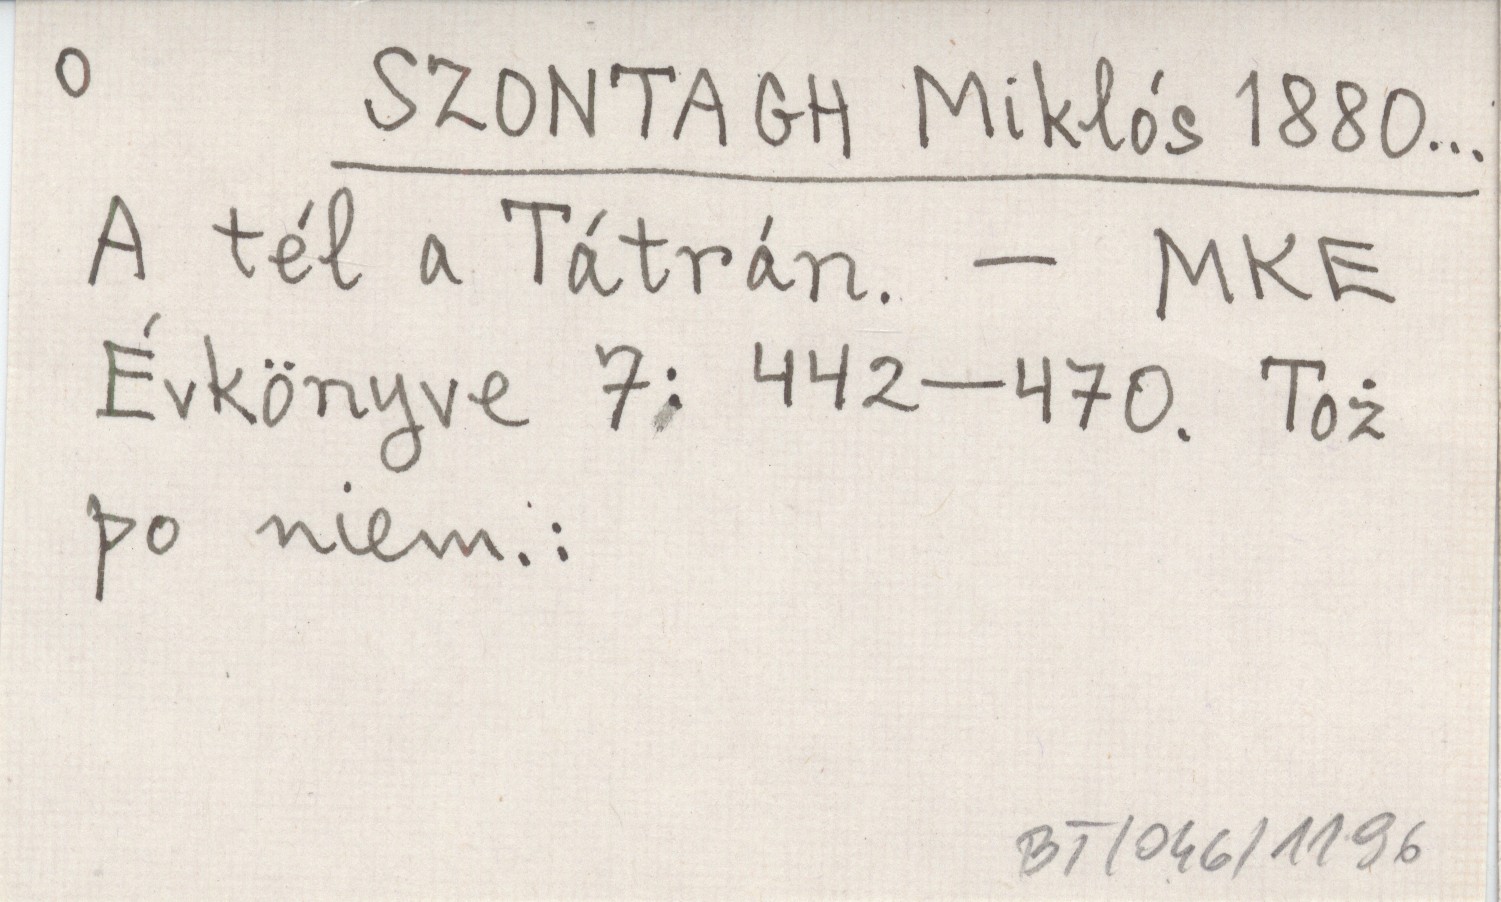 o SZONTAGH Miklós 1880...
A tél a Tátrán. — MKE
Évkönyve 7: 442—470. Toż
po niem.:
BT/046/1196